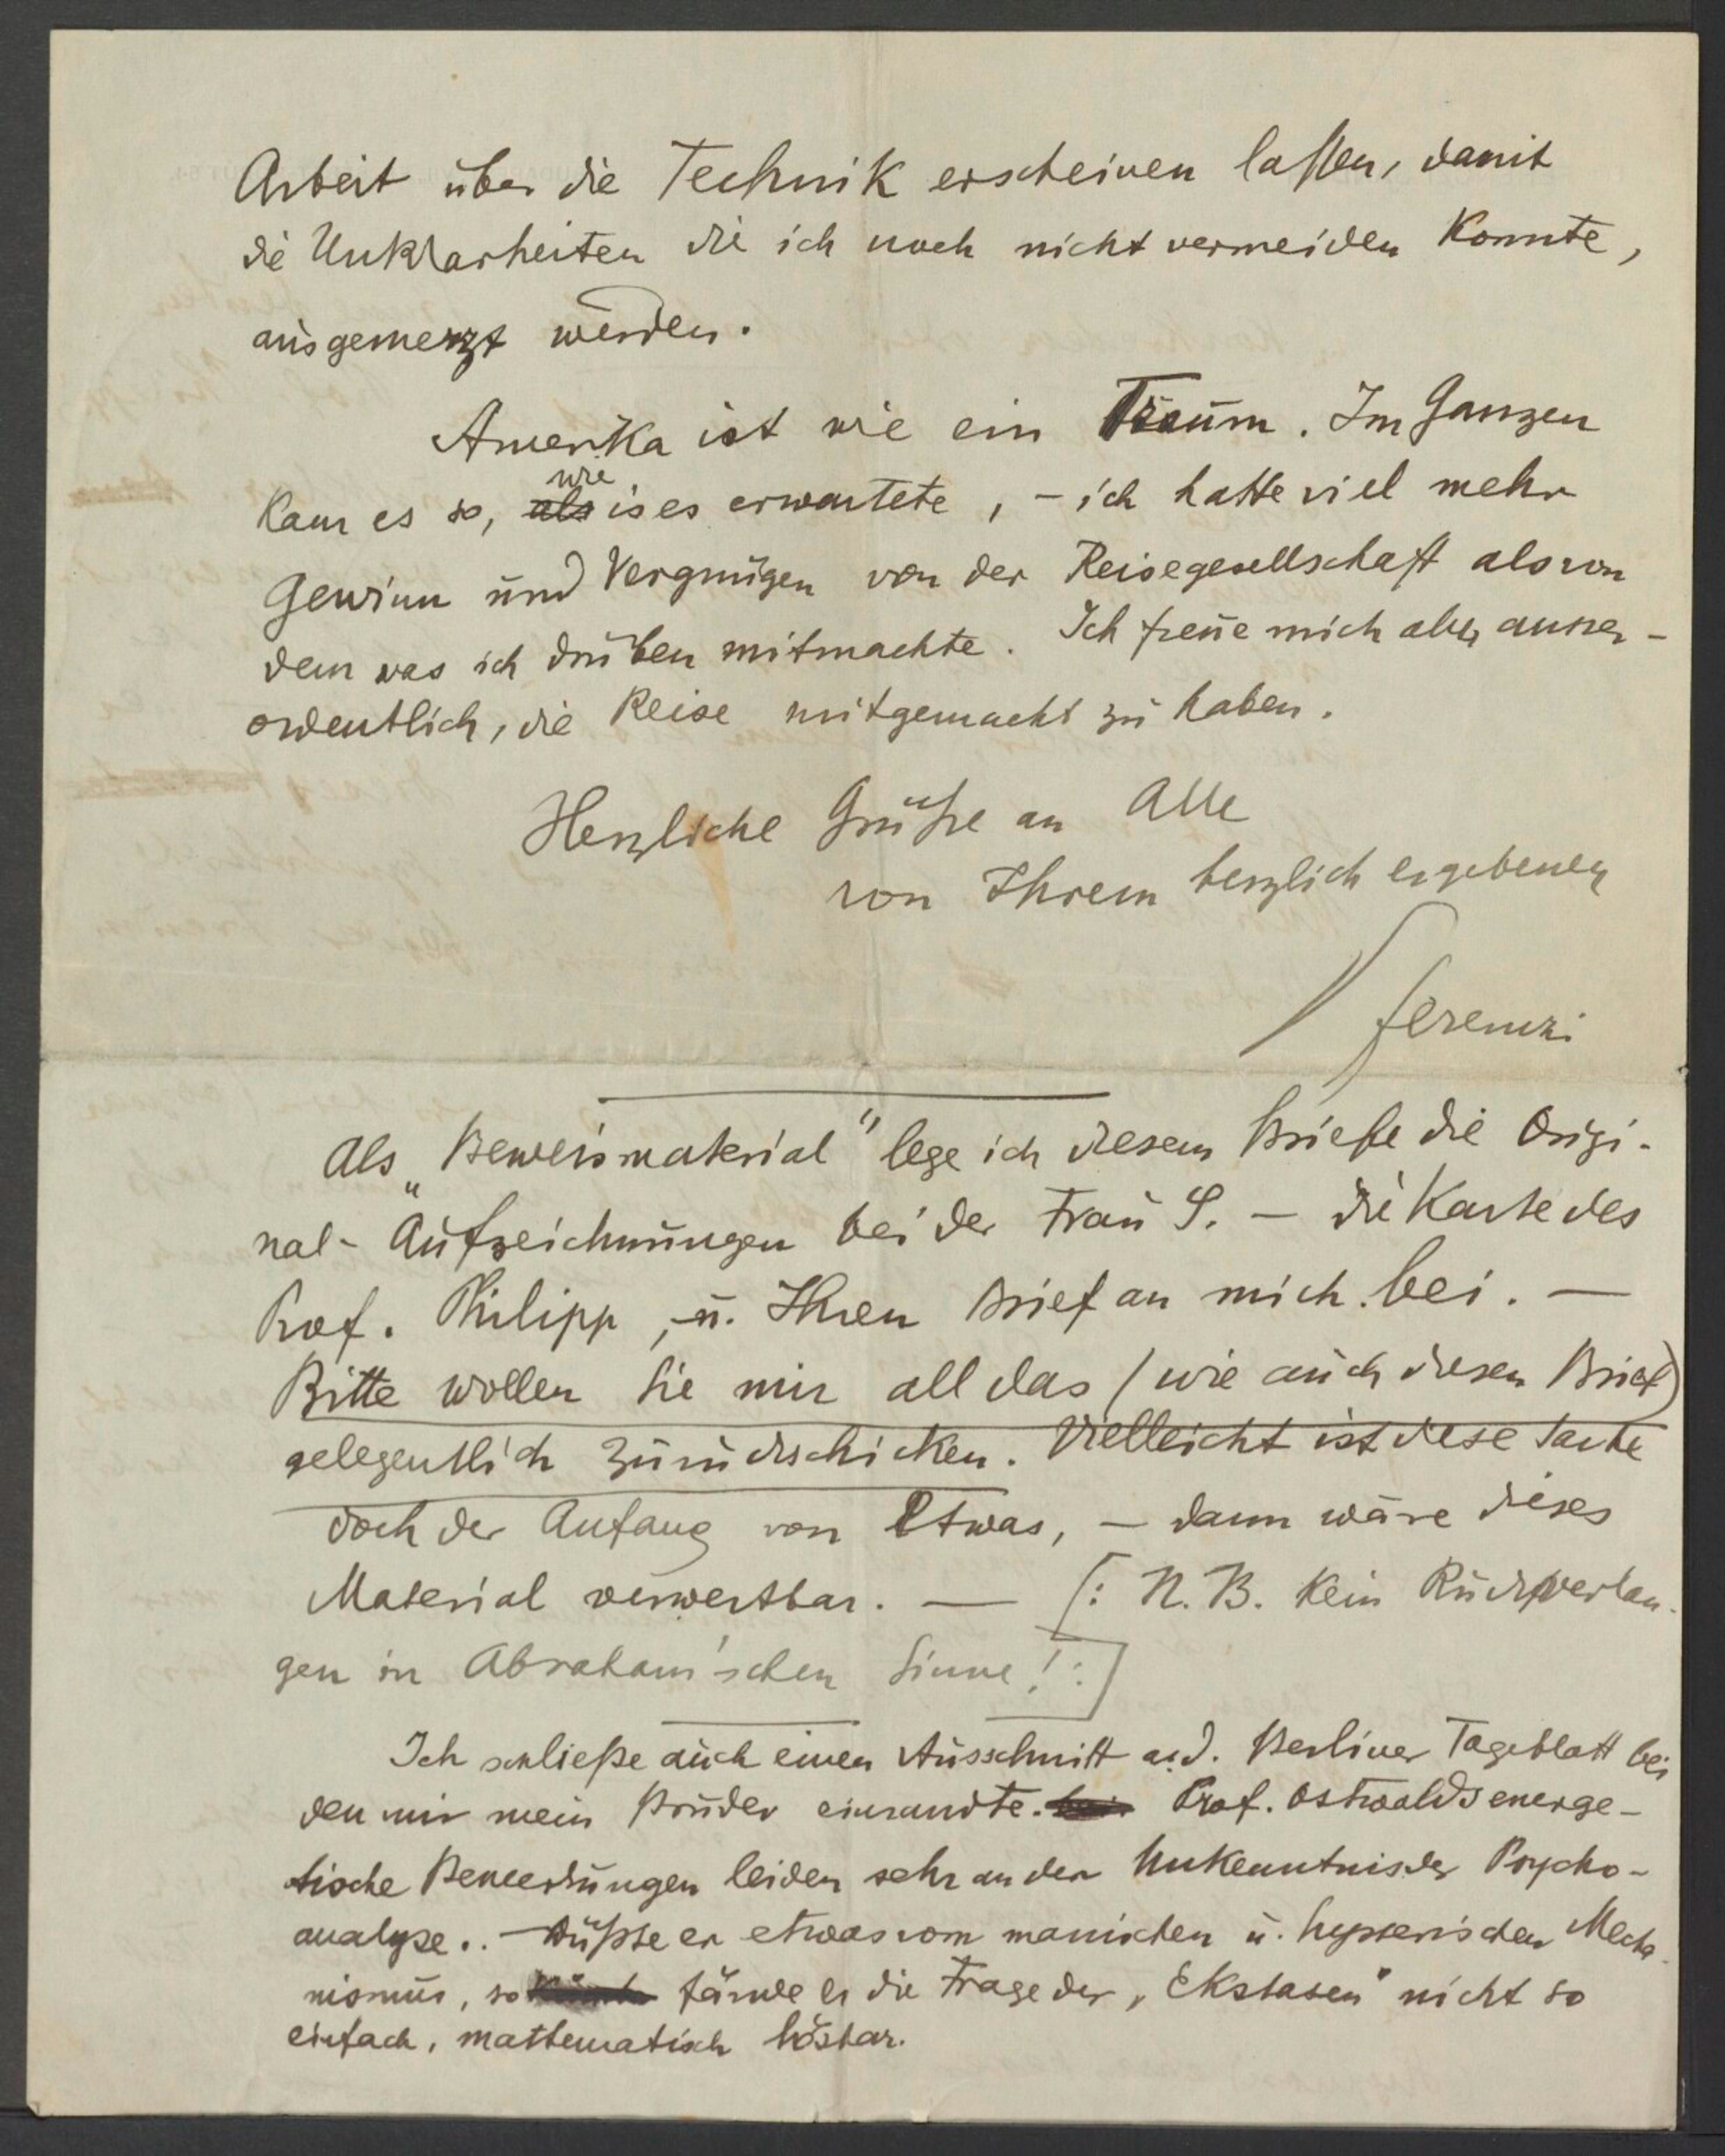 Arbeit über die Technik erscheinen laſsen, damit
die Unklarheiten die ich noch nicht vermeiden konnte,
ausgemerzt werden.
Amerika ist wie ein Traum. Im Ganzen
kam es so, als wie is es erwartete, – ich hatte viel mehr
Gewinn und Vergnügen von der Reisegesellschaft als von
dem was ich drüben mitmachte. Ich freue mich aber ausser-
ordentlich, die Reise mitgemacht zu haben.
Herzliche Grüße an Alle
von Ihrem herzlich ergebenen
Ferenczi
Als „Beweismaterial" lege ich diesem Briefe die Origi-
nal-Aufzeichnungen bei der Frau S. – die Karte des
Prof. Philipp, u. Ihren Brief an mich bei. —
Bitte wollen Sie mir all das (wie auch diesen Brief)
gelegentlich zurückschicken. Vielleicht ist diese Sache
doch der Anfang von Etwas, – dann wäre dieses
Material verwertbar. — [: N.B. Kein Rückverlan-
gen in Abraham'schen Sinne! :]
Ich schließe auch einen Ausschnitt a. d. Berliner Tageblatt bei
den mir mein Bruder einsandte. Prof. Ostwalds energe-
tische Bemerkungen leiden sehr an der Unkenntnis der Psycho-
analyse.. – Wüßte er etwas vom manischen u. hysterischen Mecha-
nismus, so fände er die Frage der „Ekstasen" nicht so
einfach, mathematisch lösbar.